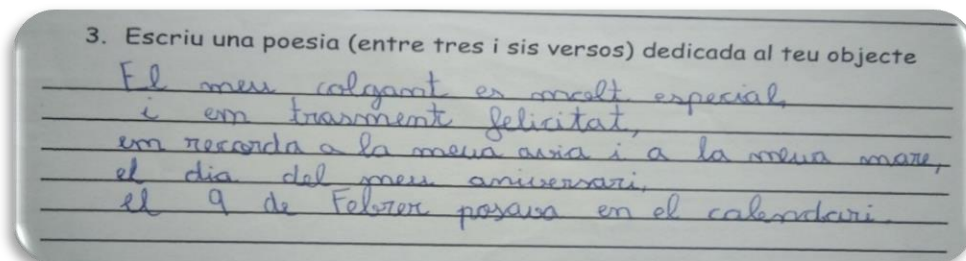 3. Escriu una poesia (entre tres i sis versos) dedicada al teu objecte
El meu colgant es molt especial,
i em trasment felicitat,
em recorda a la meua avia i a la meua mare,
el dia del meu aniversari,
el 9 de Febrer posava en el calendari.